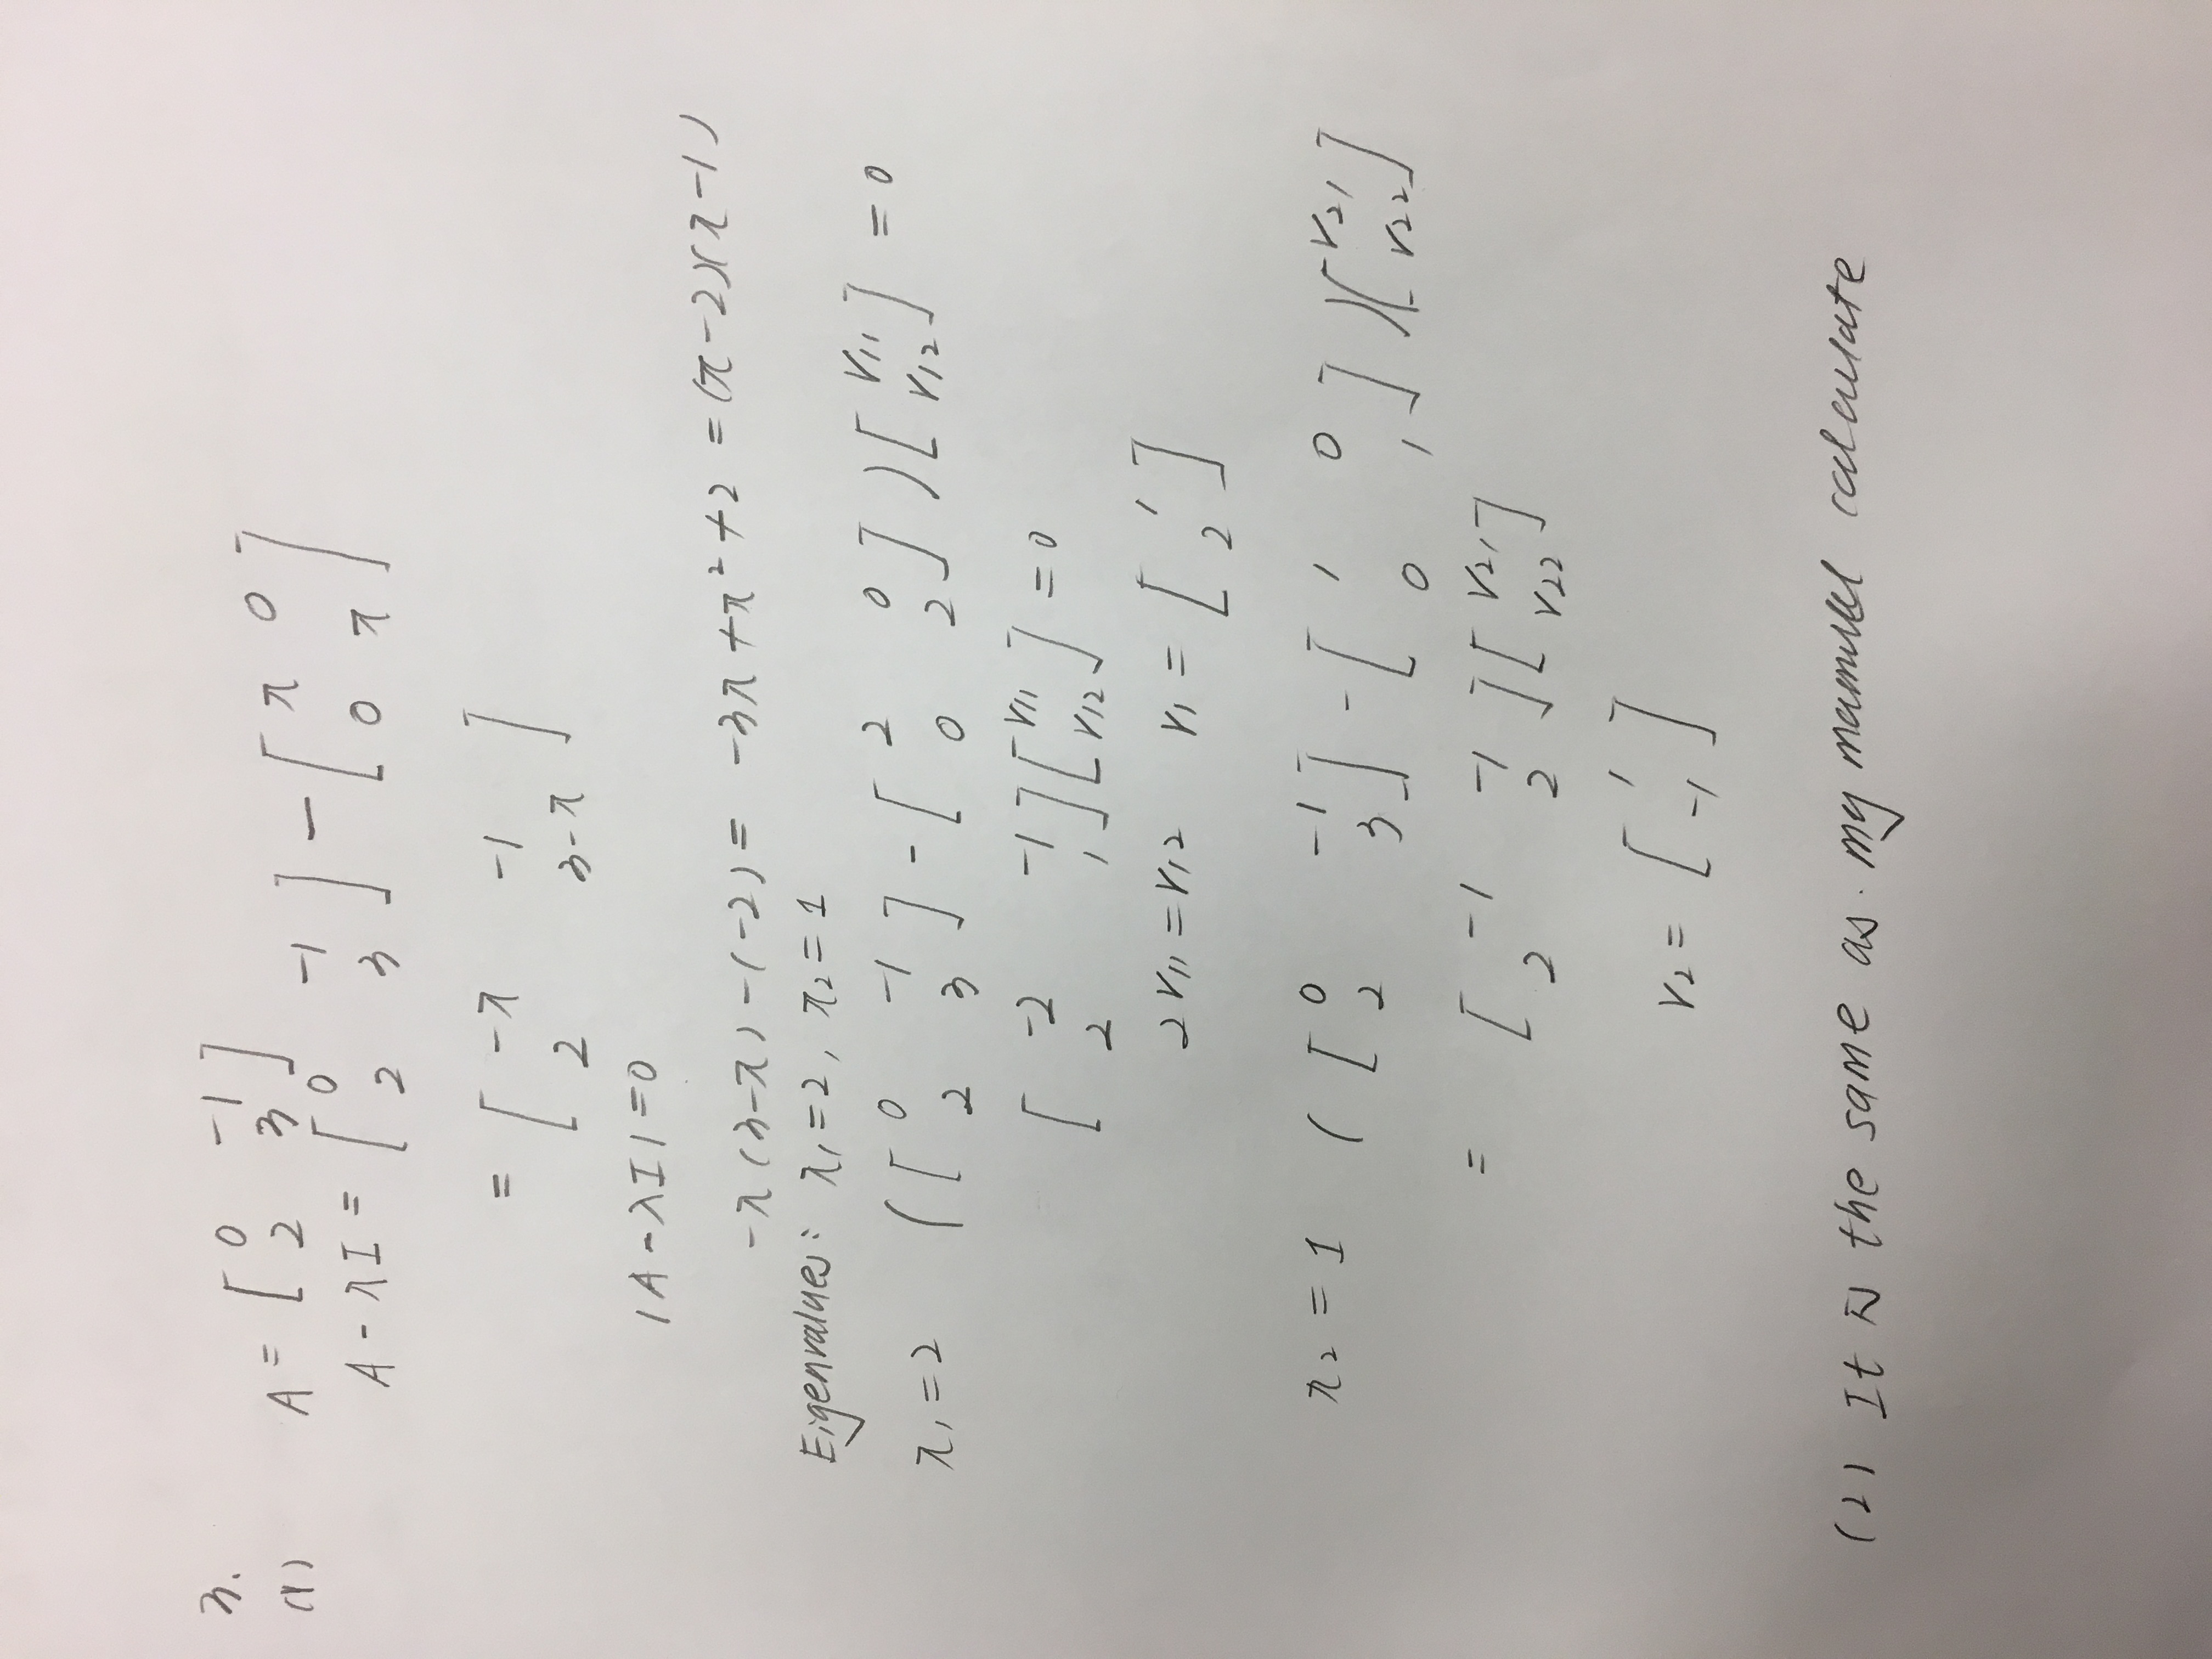 3.
(1) A = [ 0 -1 ]
[ 2 3 ]
A - λI = [ 0 -1 ] - [ λ 0 ]
[ 2 3 ] [ 0 λ ]
= [ -λ -1 ]
[ 2 3-λ ]
|A - λI| = 0
-λ(3-λ) - (-2) = -3λ + λ² + 2 = (λ-2)(λ-1)
Eigenvalues: λ₁ = 2, λ₂ = 1
λ₁ = 2 ( [ 0 -1 ] - [ 2 0 ] ) [ v₁₁ ] = 0
[ 2 3 ] [ 0 2 ] [ v₁₂ ]
[ -2 -1 ] [ v₁₁ ] = 0
[ 2 1 ] [ v₁₂ ]
2v₁₁ = v₁₂ v₁ = [ 1 ]
[ 2 ]
λ₂ = 1 ( [ 0 -1 ] - [ 1 0 ] ) [ v₂₁ ]
[ 2 3 ] [ 0 1 ] [ v₂₂ ]
= [ -1 -1 ] [ v₂₁ ]
[ 2 2 ] [ v₂₂ ]
v₂ = [ 1 ]
[ -1 ]
(2) It is the same as my manual calculate